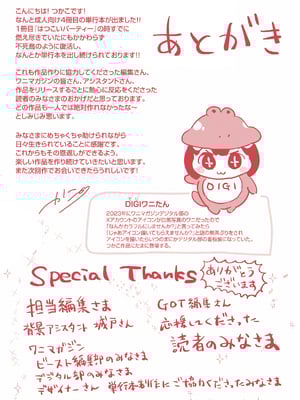 あとがき
こんにちは！つかこです！
なんと成人向け4冊目の単行本が出ました!!
1冊目「はつこいパーティー」の時すでに
燃え尽きていたにもかかわらず
不死鳥のように復活し、
なんとか単行本を出し続けられております!!
これも作品作りに協力してくださった編集さん、
ワニマガジンの皆さん、アシスタントさん、
作品をリリースするごとに熱心に反応をくださった
読者のみなさまのおかげだと思っております。
どの作品も一人では絶対作れなかったな〜
としみじみ思います。
みなさまにめちゃくちゃ助けられながら
日々生きられていることに感謝です。
これからもその恩返しができるよう、
楽しい作品を作り続けていきたいと思います。
また次回作でお会いできたらうれしいです！
DIGI
DIGIワニたん
2023年にワニマガジンデジタル部の
Xアカウントのアイコンが自然写真のワニだったので
「なんかカラフルにしませんか？」と言ってみたら
「じゃあアイコン描いてもらえませんか？」と謎の無茶ぶりをされ
アイコンを描いたらいつのまにかデジタル部の看板娘になっていた。
つかこ作品にたまに登場する。
Special Thanks
ありがとう
ございます
担当編集さま
背景アシスタント 城戸さん
ワニマガジン
ビースト編集部のみなさま
デジタル部のみなさま
デザイナーさん 単行本制作にご協力くださったみなさま
GOT編集さん
応援してくださった
読者のみなさま